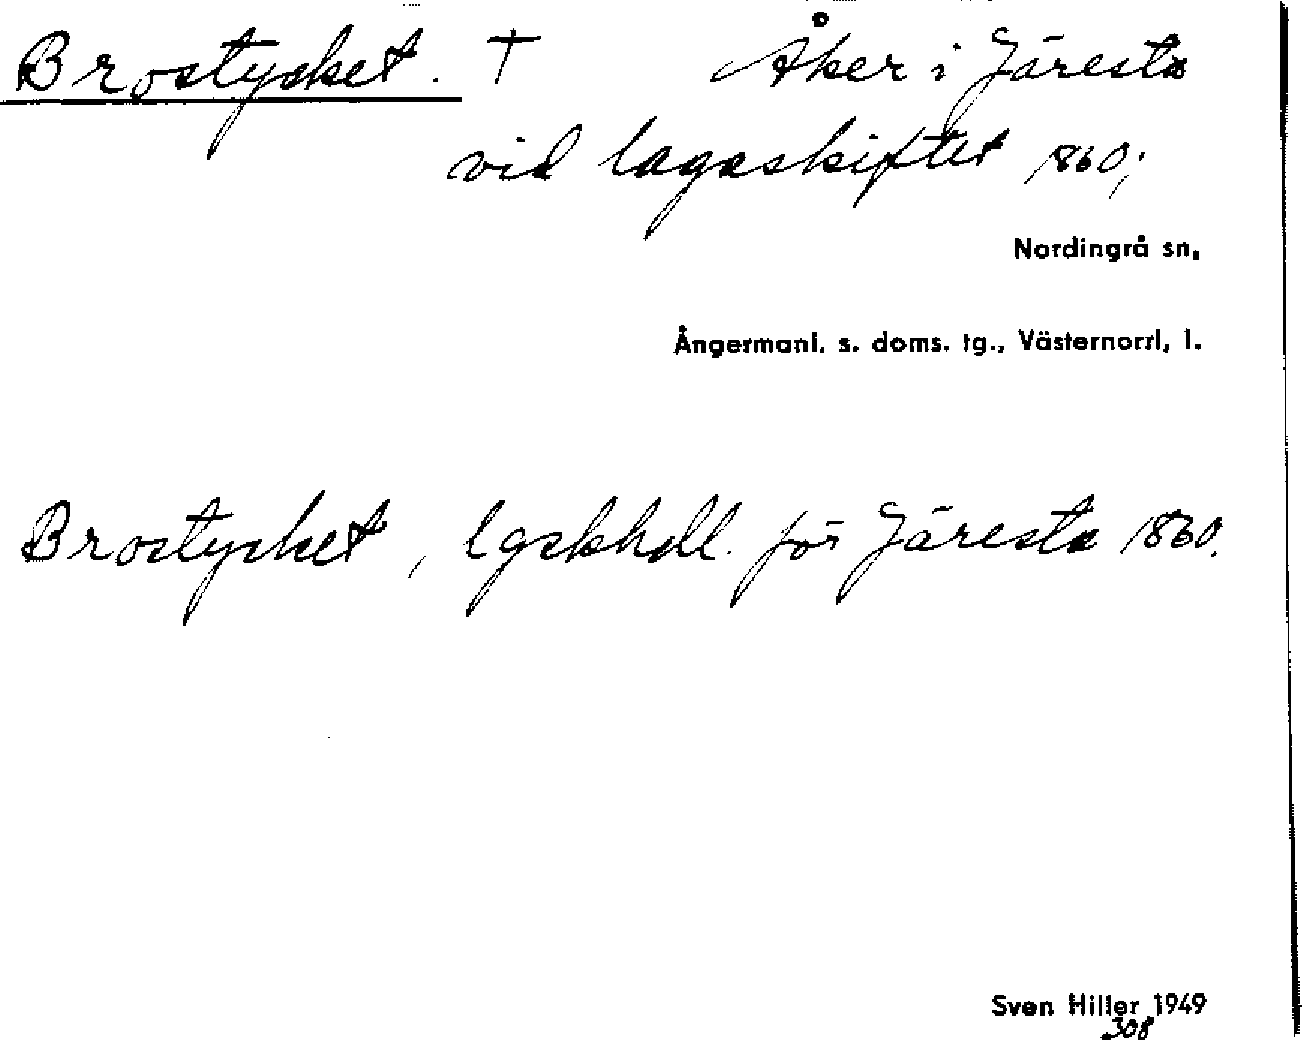 Brostycket. † Åker i Järesta
vid lagaskiftet 1860;
Nordingrå sn,
Ångermanl. s. doms. tg., Västernorrl, l.
Brostycket, lgskhdl. för Järesta 1860.
Sven Hiller 1949
308